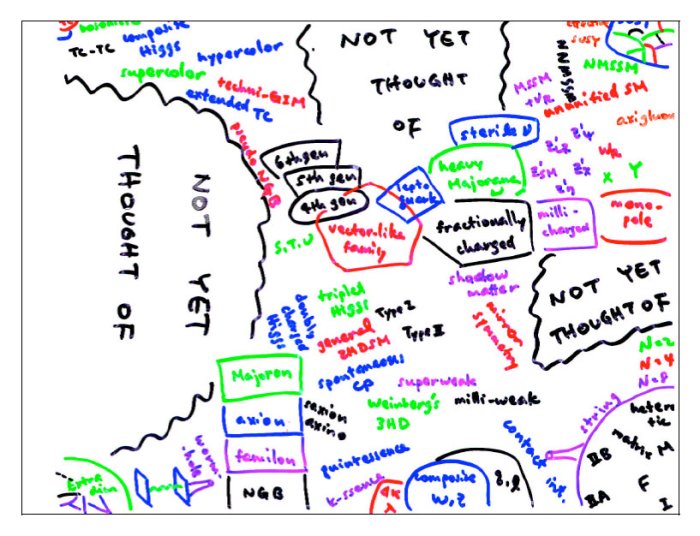 composite
Higgs
TC-TC
hypercolor
supercolor
techni-GIM
extended TC
pseudo NGB
NOT YET
THOUGHT
OF
SUSY
NMSSM
MSSM
+νR
NNMSSM
ununified SM
sterile ν
heavy
Majorana
ν
lepto
quark
6th gen
5th gen
4th gen
vector-like
family
fractionally
charged
milli-
charged
mono-
pole
WR
X Y
NOT YET
THOUGHT OF
S.T.U
shadow
matter
mirror
symmetry
NOT YET
THOUGHT OF
triplet
Higgs
doubly
charged
Higgs
general
2HDSM
Type I
Type II
spontaneous
CP
superweak
Weinberg's
3HD
milli-weak
Majoron
axion
saxion
axino
familon
NGB
quintessence
k-ssence
worm-
hole
Extra
dim
composite
W, Z
contact
int.
string
N=2
N=4
N=8
heterotic
matrix M
IIB
IIA
F
I